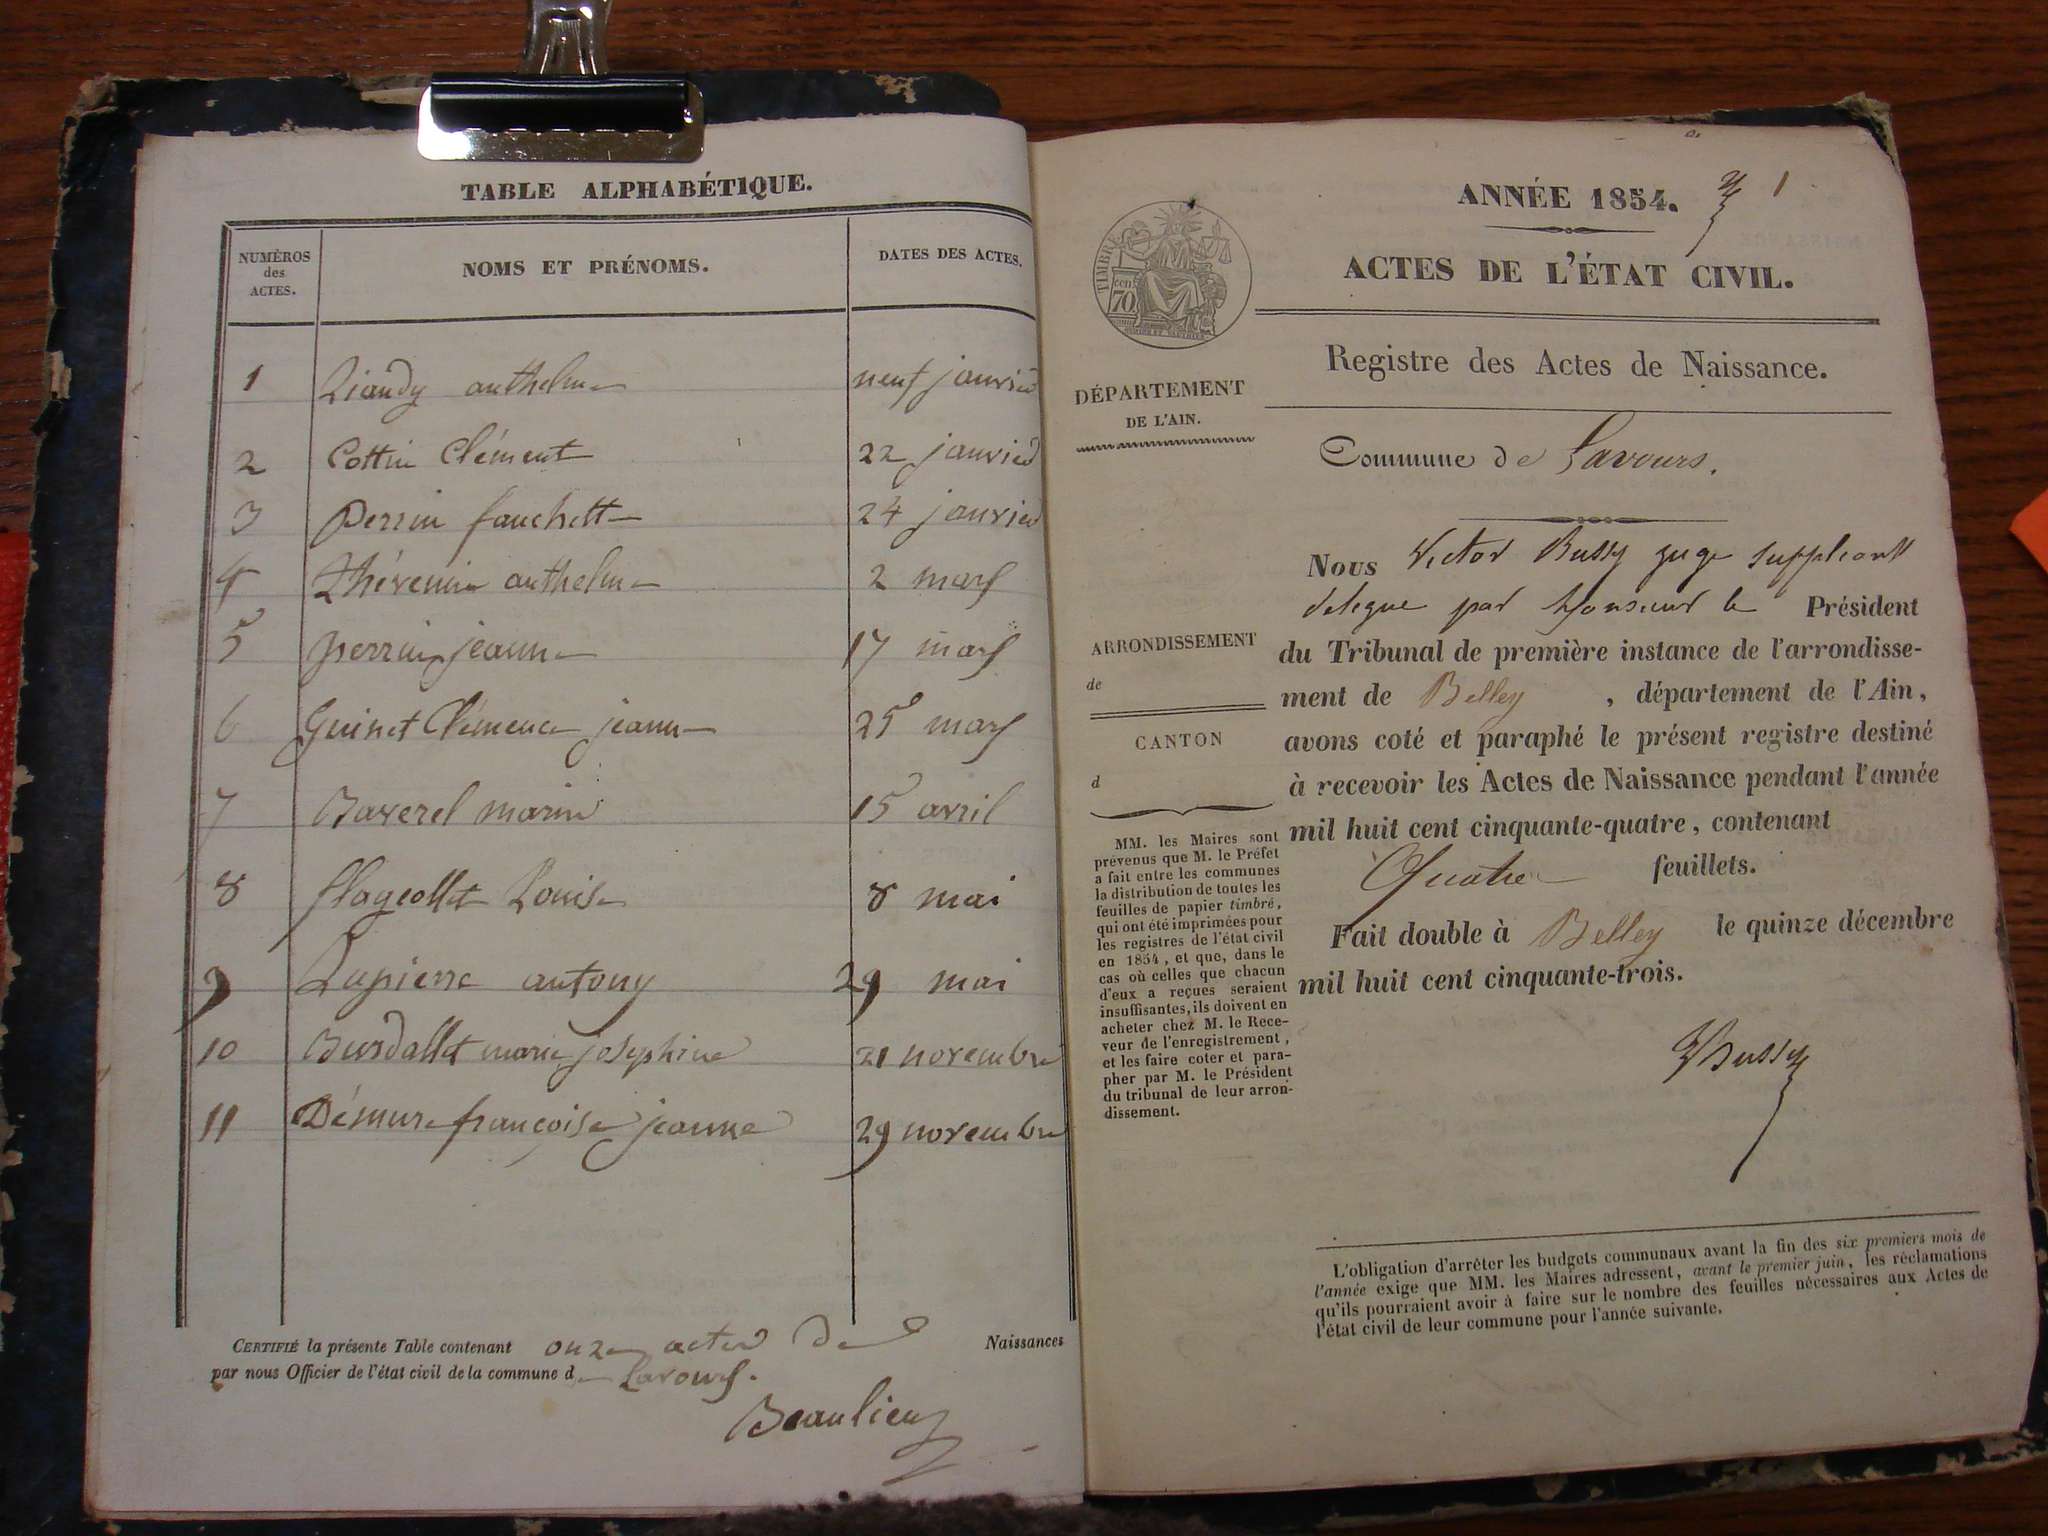 TABLE ALPHABÉTIQUE.
NUMÈROS
des
ACTES.
NOMS ET PRÉNOMS.
DATES DES ACTES.
1 anthelme neuf janvier
2 Cottin Clément 22 janvier
3 Perrin fanchette 24 janvier
4 Thévenin anthelme 2 mars
5 perrin jeanne 17 mars
6 Guinet Clémence jeanne 25 mars
7 Baverel marie 15 avril
8 flageollet Louise 8 mai
9 Lapierre antony 29 mai
10 Burdallet marie josephine 21 novembre
11 Démure françoise jeanne 29 novembre
CERTIFIÉ la présente Table contenant onze actes de Naissances
par nous Officier de l'état civil de la commune de Lavours.
Beaulieu
1
ANNÉE 1854.
ACTES DE L'ÉTAT CIVIL.
TIMBRE
cen
70
Registre des Actes de Naissance.
DÉPARTEMENT
DE L'AIN.
Commune de Lavours.
Nous Victor Bussy juge suppleant
delegue par Monsieur le Président
du Tribunal de première instance de l'arrondisse-
ment de Belley, département de l'Ain,
avons coté et paraphé le présent registre destiné
à recevoir les Actes de Naissance pendant l'année
mil huit cent cinquante-quatre, contenant
Quatre feuillets.
Fait double à Belley le quinze décembre
mil huit cent cinquante-trois.
VBussy
ARRONDISSEMENT
de
CANTON
d
MM. les Maires sont
prévenus que M. le Préfet
a fait entre les communes
la distribution de toutes les
feuilles de papier timbré,
qui ont été imprimées pour
les registres de l'état civil
en 1854, et que, dans le
cas où celles que chacun
d'eux a reçues seraient
insuffisantes, ils doivent en
acheter chez M. le Rece-
veur de l'enregistrement,
et les faire coter et para-
pher par M. le Président
du tribunal de leur arron-
dissement.
L'obligation d'arrêter les budgets communaux avant la fin des six premiers mois de
l'année exige que MM. les Maires adressent, avant le premier juin, les réclamations
qu'ils pourraient avoir à faire sur le nombre des feuilles nécessaires aux Actes de
l'état civil de leur commune pour l'année suivante.